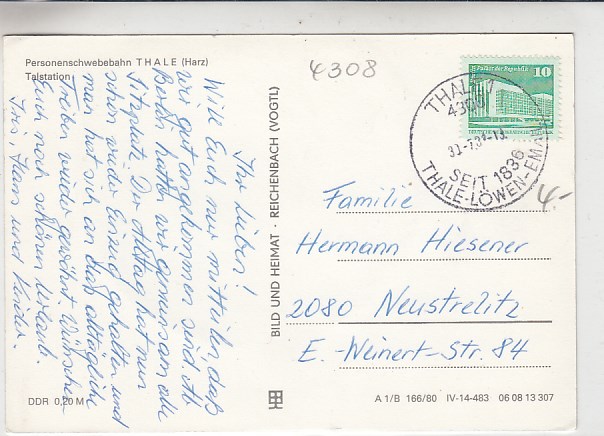 Personenschwebebahn THALE (Harz)
Talstation
4308
Ihr Lieben!
Will Euch nur mitteilen, daß
wir gut angekommen sind. Ab
Berlin hatten wir gemeinsam alle
Sitzplatz. Der Alltag hat nun
schon wieder Einzug gehalten und
man hat sich an das alltägliche
Treiben wieder gewöhnt. Wünschen
Euch noch schönen Urlaub.
Iris, Hans und Kinder.
BILD UND HEIMAT · REICHENBACH (VOGTL)
Palast der Republik
10
THALE 1
4308
SEIT 1836
THALE-LÖWEN-EMAIL
4.-
Familie
Hermann Hiesener
2080 Neustrelitz
E.-Weinert-Str. 84
DDR 0,20 M
A 1/B 166/80 IV-14-483 06 08 13 307